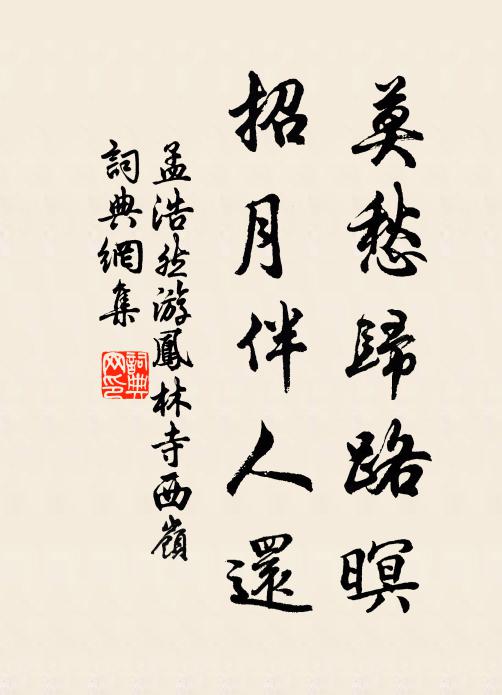 莫愁歸路暝
招月伴人還
孟浩然游鳳林寺西嶺
詞典網集
詞典網印